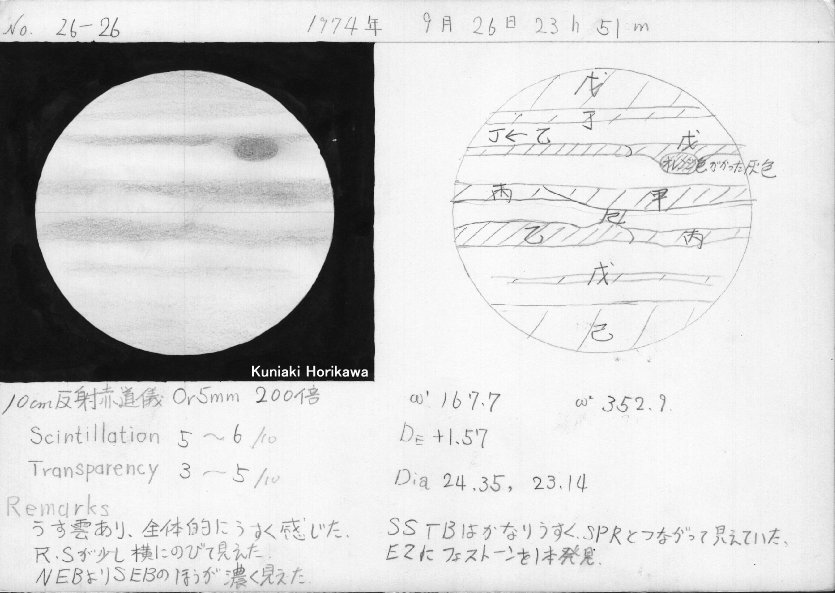 No. 26-26 1974年 9月 26日 23h 51m
戊
丁
丁←乙 戊
オレンジ色がかった灰色
丙 甲
己
乙 丙
戊
己
Kuniaki Horikawa
10cm反射赤道儀 Or5mm 200倍
ω¹ 167.7 ω² 352.9.
Scintillation 5〜6/10
DE +1.57
Transparency 3〜5/10
Dia 24.35, 23.14
Remarks
うす雲あり、全体的にうすく感じた.
R.Sが少し横にのびて見えた.
NEBよりSEBのほうが濃く見えた.
SSTBはかなりうすく、SPRとつながって見えていた、
EZにフェストーンを1本発見.